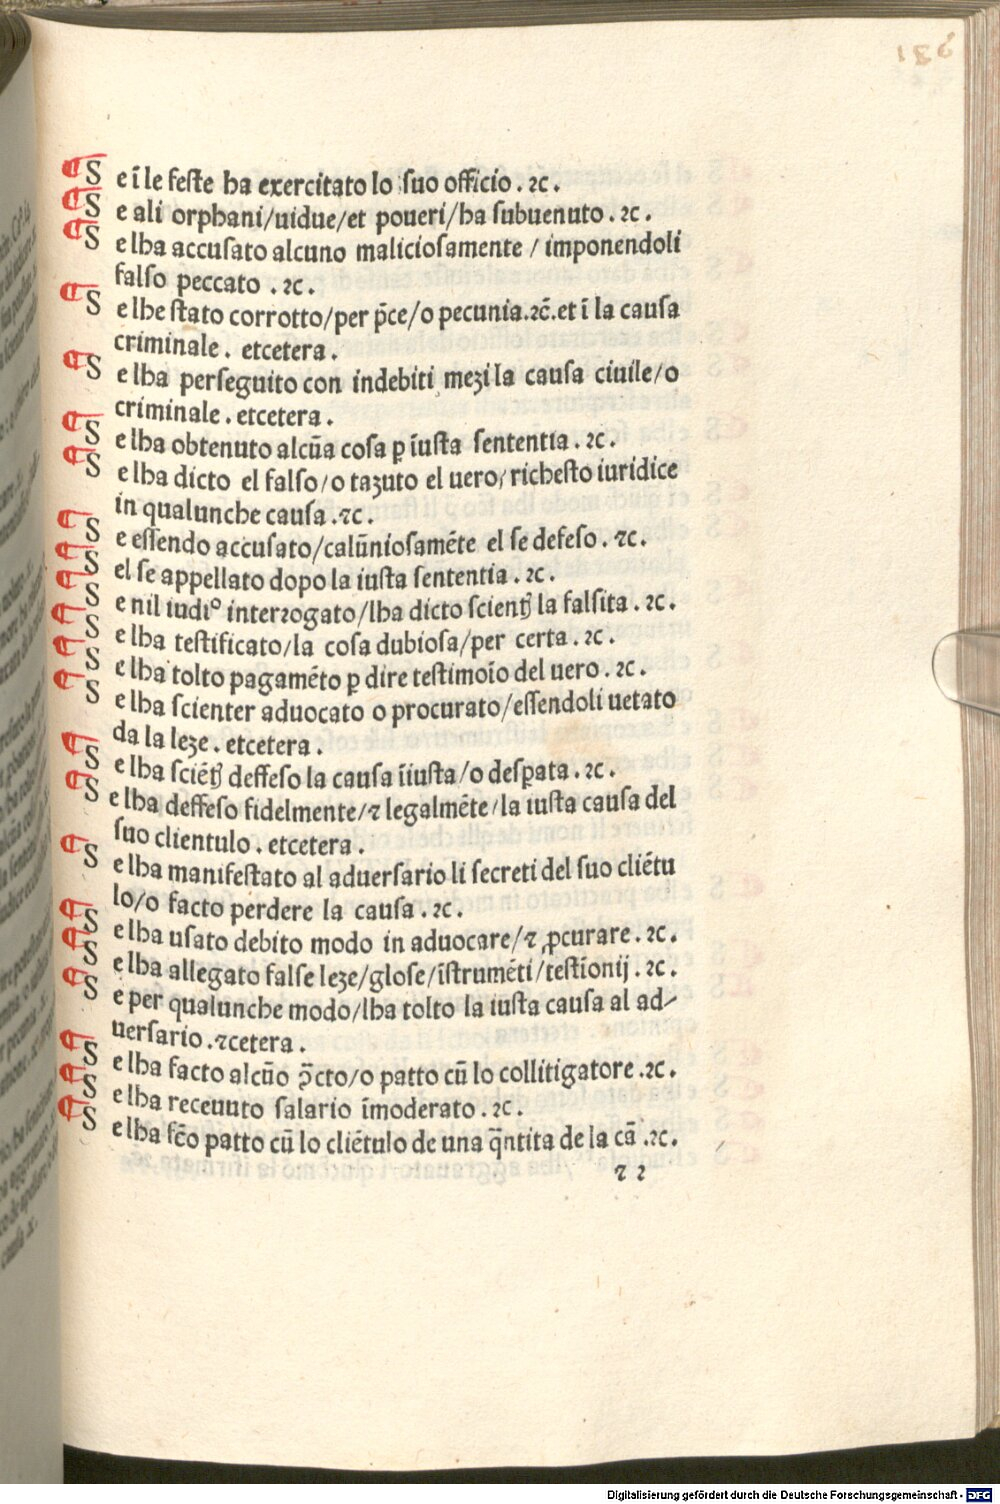 136
¶ Se ī le feste ha exercitato lo suo officio . ⁊c .
¶ Se ali orphani/uidue/et poueri/ha subuenuto . ⁊c .
¶ Se lha accusato alcuno maliciosamente / imponendoli
falso peccato . ⁊c .
¶ Se lhe stato corrotto/per p̄ce/o pecunia.⁊c̄.et ī la causa
criminale . etcetera .
¶ Se lha perseguito con indebiti mezi la causa ciuile/o
criminale . etcetera .
¶ Se lha obtenuto alcūa cosa ꝑ iusta sententia . ⁊c .
¶ Se lha dicto el falso/o tazuto el uero/richesto iuridice
in qualunche causa . ⁊c .
¶ Se essendo accusato/calūniosamēte el se defeso . ⁊c .
¶ Sel se appellato dopo la iusta sententia . ⁊c .
¶ Se nil iudiᵒ interrogato/lha dicto scient̄ la falsita . ⁊c .
¶ Se lha testificato/la cosa dubiosa/per certa . ⁊c .
¶ Se lha tolto pagamēto ꝑ dire testimoīo del uero . ⁊c .
¶ Se lha scienter aduocato o procurato/essendoli uetato
da la leze . etcetera .
¶ Se lha sciēt̄ deffeso la causa īiusta/o desꝑata . ⁊c .
¶ Se lha deffeso fidelmente/⁊ legalmēte/la iusta causa del
suo clientulo . etcetera .
¶ Se lha manifestato al aduersario li secreti del suo cliētu
lo/o facto perdere la causa . ⁊c .
¶ Se lha usato debito modo in aduocare/⁊ ꝓcurare . ⁊c .
¶ Se lha allegato false leze/glose/īstrumēti/testīonij . ⁊c .
¶ Se per qualunche modo/lha tolto la iusta causa al ad⸗
uersario . ⁊cetera .
¶ Se lha facto alcūo p̄cto/o patto cū lo collitigatore .⁊c .
¶ Se lha receuuto salario īmoderato . ⁊c .
¶ Se lha fc̄o patto cū lo cliētulo de una q̄ntita de la cā .⁊c .
⁊ 2
Digitalisierung gefördert durch die Deutsche Forschungsgemeinschaft - DFG